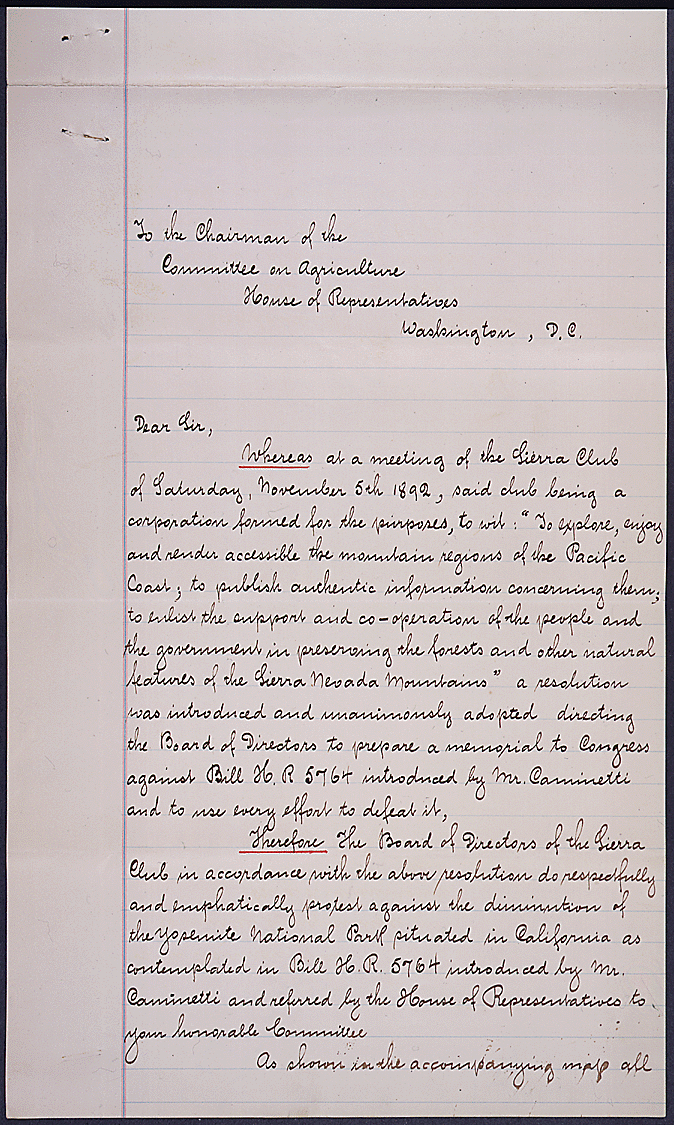 To the Chairman of the
Committee on Agriculture
House of Representatives
Washington, D.C.
Dear Sir,
Whereas at a meeting of the Sierra Club
of Saturday, November 5th 1892, said club being a
corporation formed for the purposes, to wit: "To explore, enjoy
and render accessible the mountain regions of the Pacific
Coast; to publish authentic information concerning them;
to enlist the support and co-operation of the people and
the government in preserving the forests and other natural
features of the Sierra Nevada Mountains" a resolution
was introduced and unanimously adopted directing
the Board of Directors to prepare a memorial to Congress
against Bill H. R 5764 introduced by Mr. Caminetti
and to use every effort to defeat it,
Therefore The Board of Directors of the Sierra
Club in accordance with the above resolution do respectfully
and emphatically protest against the diminution of
the Yosemite National Park situated in California as
contemplated in Bill H. R. 5764 introduced by Mr.
Caminetti and referred by the House of Representatives to
your honorable Committee
As shown in the accompanying map all